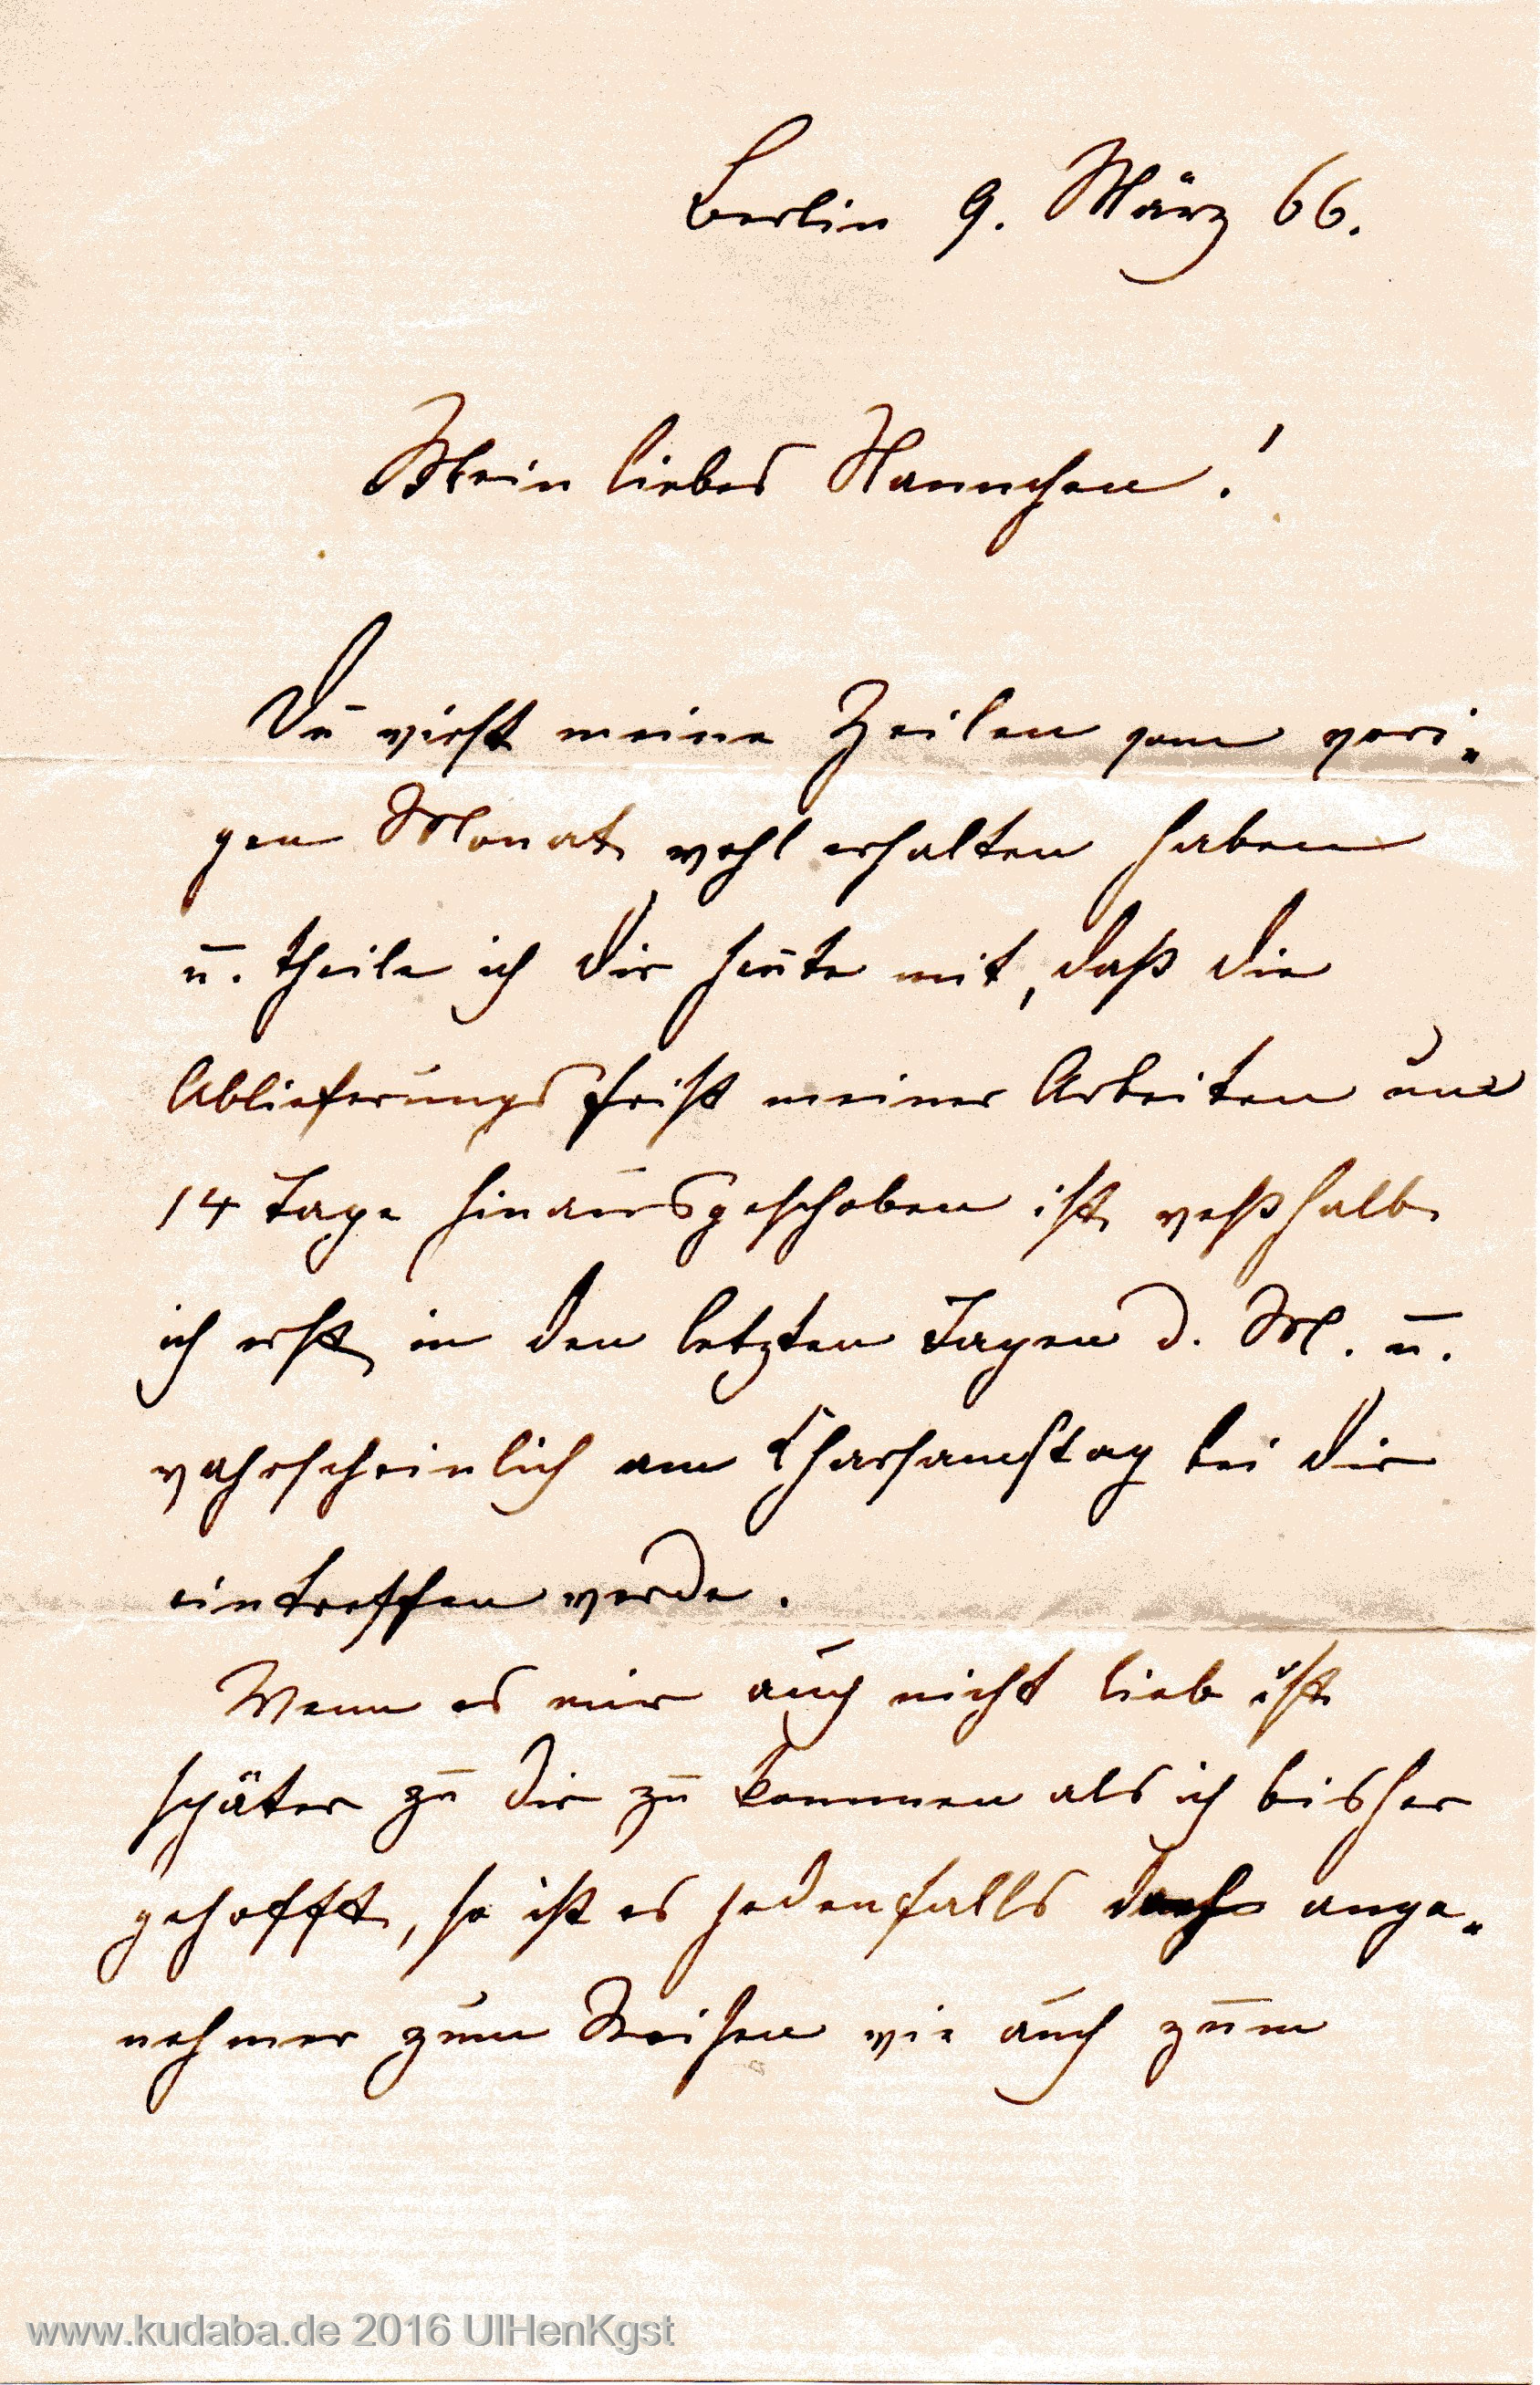 Berlin 9. März 66.
Mein liebes Nannchen!
Du wirst meine Zeilen vom vori-
gen Monat wohl erhalten haben
u. theile ich Dir heute mit, daß die
Ablieferungsfrist meiner Arbeiten um
14 Tage hinausgeschoben ist weßhalb
ich erst in den letzten Tagen d. M. u.
wahrscheinlich am Charsamstag bei Dir
eintreffen werde.
Wenn es mir auch nicht lieb ist
später zu Dir zu kommen als ich bisher
gehofft, so ist es jedenfalls doch ange-
nehmer zum Reisen wie auch zum
www.kudaba.de 2016 UlHenKgst